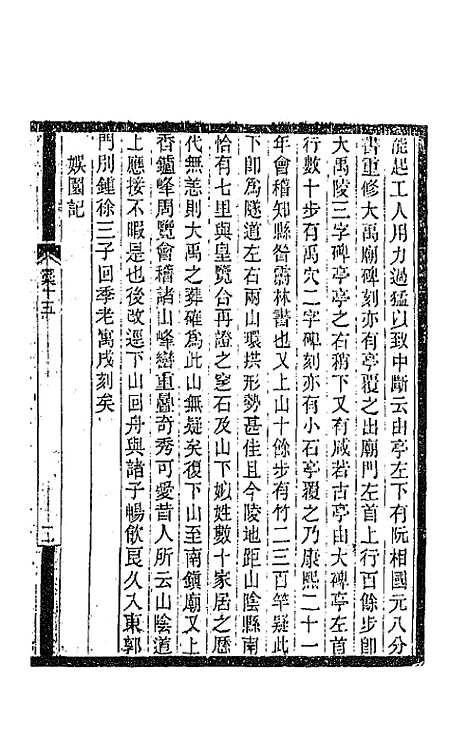 能起工人用力過猛以致中斷云由亭左下有阮相國元八分
書重修大禹廟碑刻亦有亭覆之出廟門左首上行百餘步卽
大禹陵三字碑亭亭之右稍下又有咸若古亭由大碑亭左首
行數十步有禹穴二字碑刻亦有小石亭覆之乃康熙二十一
年會稽知縣昝霨林書也又上山十餘步有竹二三百竿疑此
下卽爲隧道左右兩山環拱形勢甚佳且今陵地距山陰縣南
恰有七里與皇覽合再證之窆石及山下姒姓數十家居之歷
代無恙則大禹之葬確爲此山無疑矣復下山至南鎮廟又上
香鑪峰周覽會稽諸山峰巒重疊奇秀可愛昔人所云山陰道
上應接不暇是也後改逕下山回舟與諸子暢飲良久入東郭
門別鍾徐三子回季老寓戌刻矣
娛園記